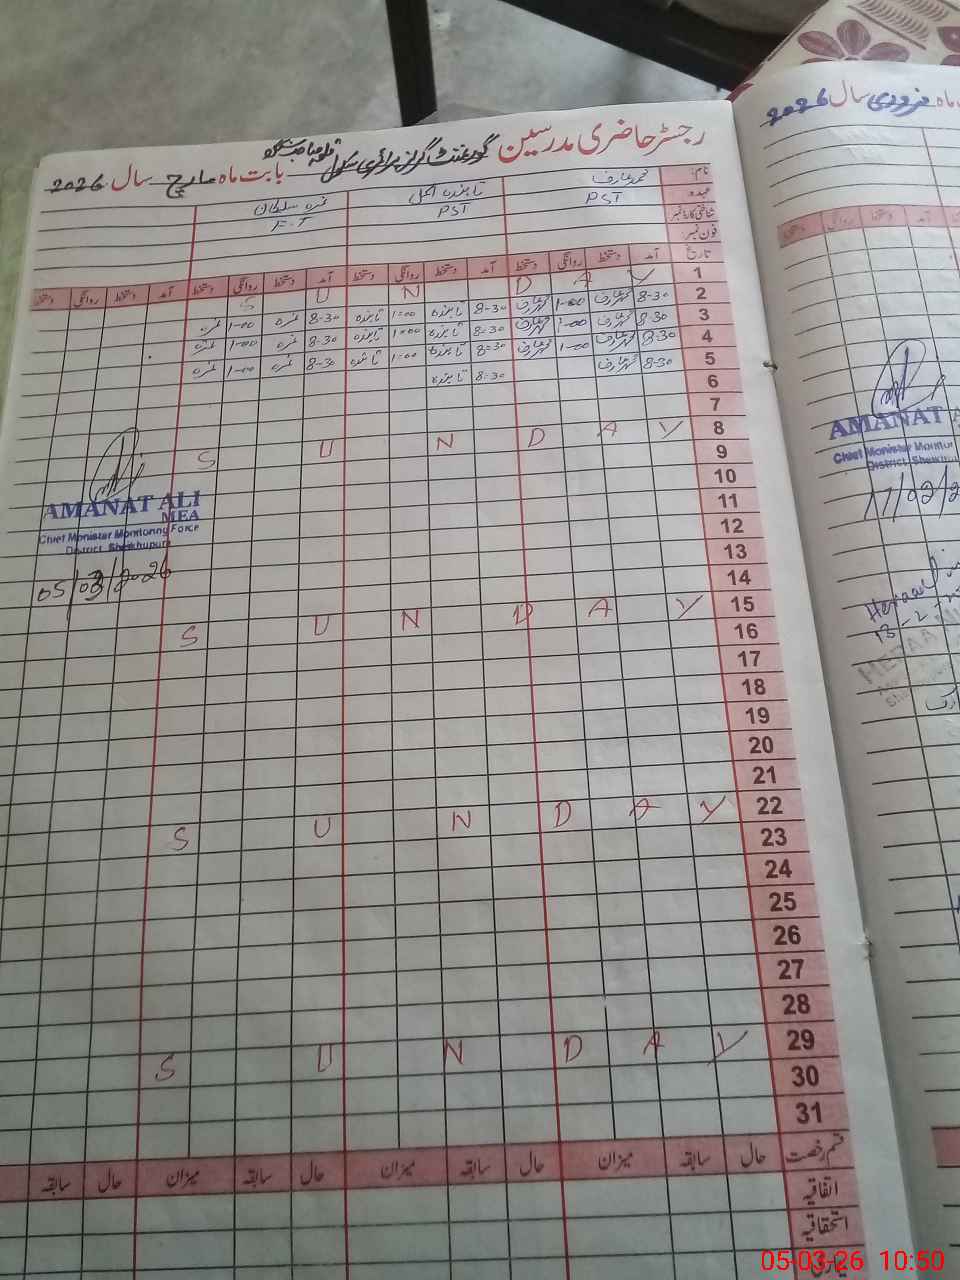 رجسٹر حاضری مدرسین گورنمنٹ گرلز پرائمری سکول بابت ماہ مارچ سال 2026
نام: محمد عارف تابندہ اکمل نمرہ سلطان
عہدہ PST PST F-T
شناختی کارڈ نمبر
فون نمبر:
تاریخ آمد دستخط روانگی دستخط آمد دستخط روانگی دستخط آمد دستخط روانگی دستخط آمد دستخط روانگی دستخط
1 S U N D A Y
2 8-30 محمد عارف 1-00 محمد عارف 8-30 تابندہ 1-00 تابندہ 8-30 نمرہ 1-00 نمرہ
3 8-30 محمد عارف 1-00 محمد عارف 8-30 تابندہ 1-00 تابندہ 8-30 نمرہ 1-00 نمرہ
4 8-30 محمد عارف 1-00 محمد عارف 8-30 تابندہ 1-00 تابندہ 8-30 نمرہ 1-00 نمرہ
5 8-30 محمد عارف 8-30 تابندہ
6
7
8 S U N D A Y
9
10
11
12
13
14
15 S U N D A Y
16
17
18
19
20
21
22 S U N D A Y
23
24
25
26
27
28
29 S U N D A Y
30
31
قسم رخصت حال سابقہ میزان حال سابقہ میزان حال سابقہ میزان حال سابقہ
اتفاقیہ
استحقاقیہ
AMANAT ALI
MEA
Chief Monister Monitoring Force
District Sheikhupura
05/03/2026
ماہ فروری سال 2026
AMANAT A
Chief Monister Monitor
District Sheikhupu
11/02/2
13-2-2
05-03-26 10:50